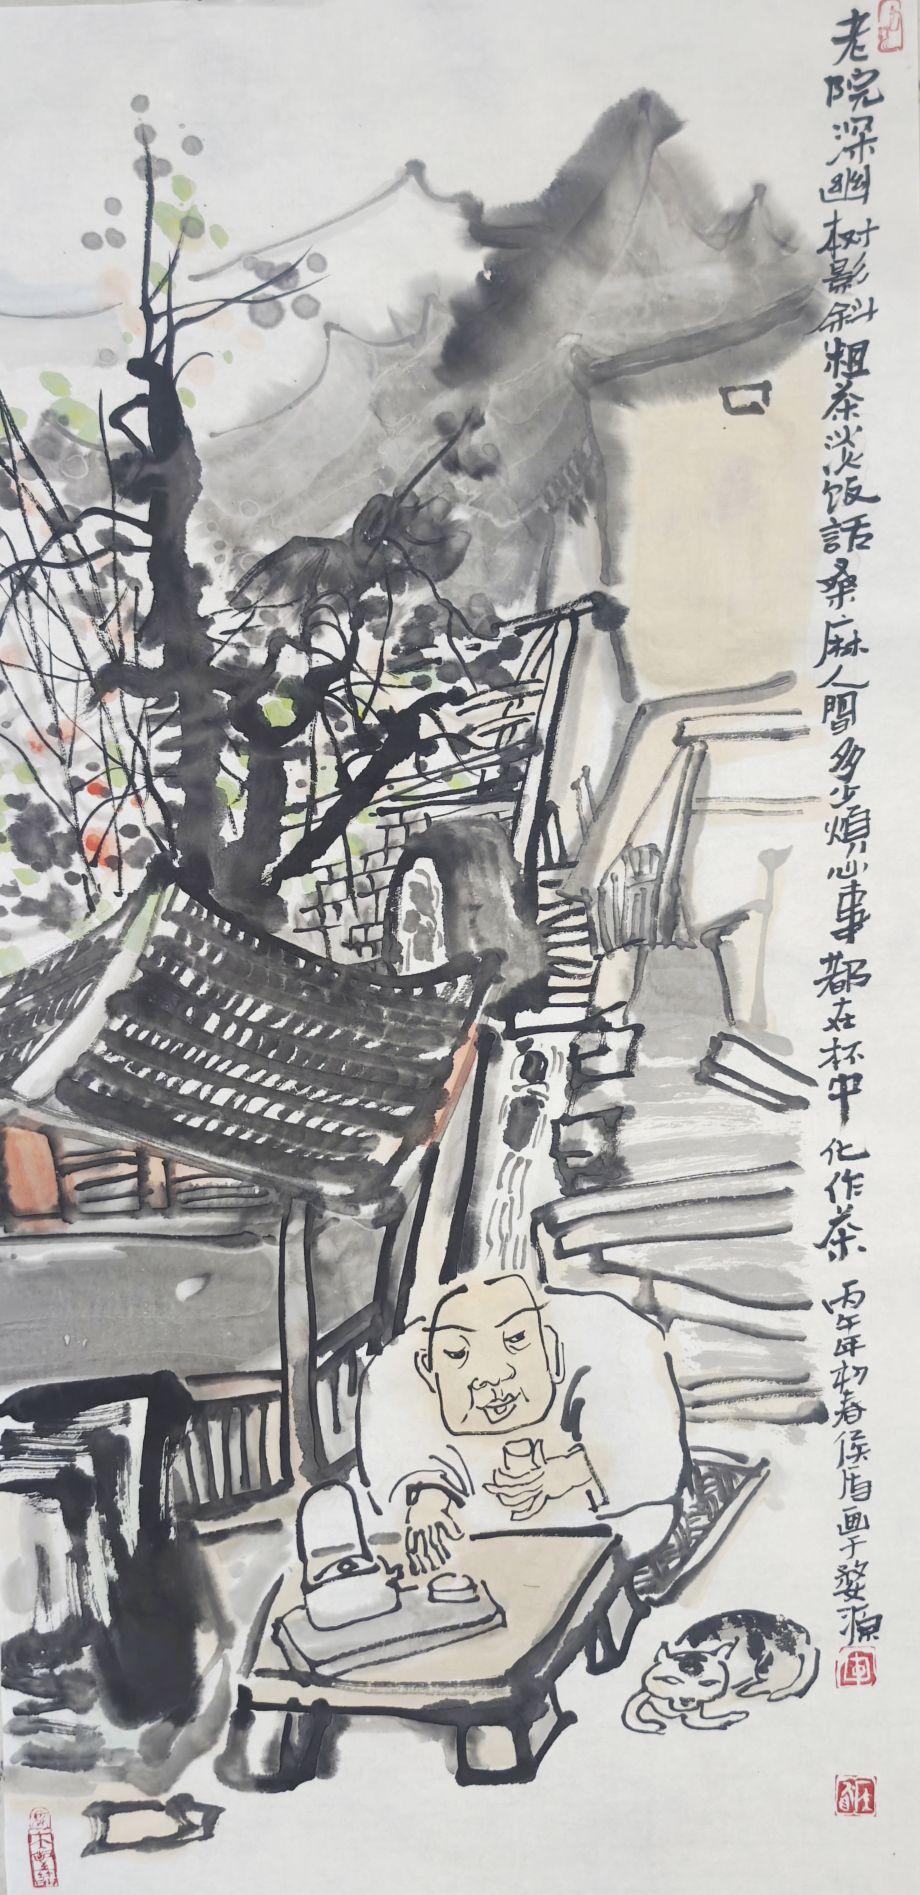 老院深幽树影斜粗茶淡饭話桑麻人間多少煩心事都在杯中化作茶 丙午年初春侯盾画于婺源